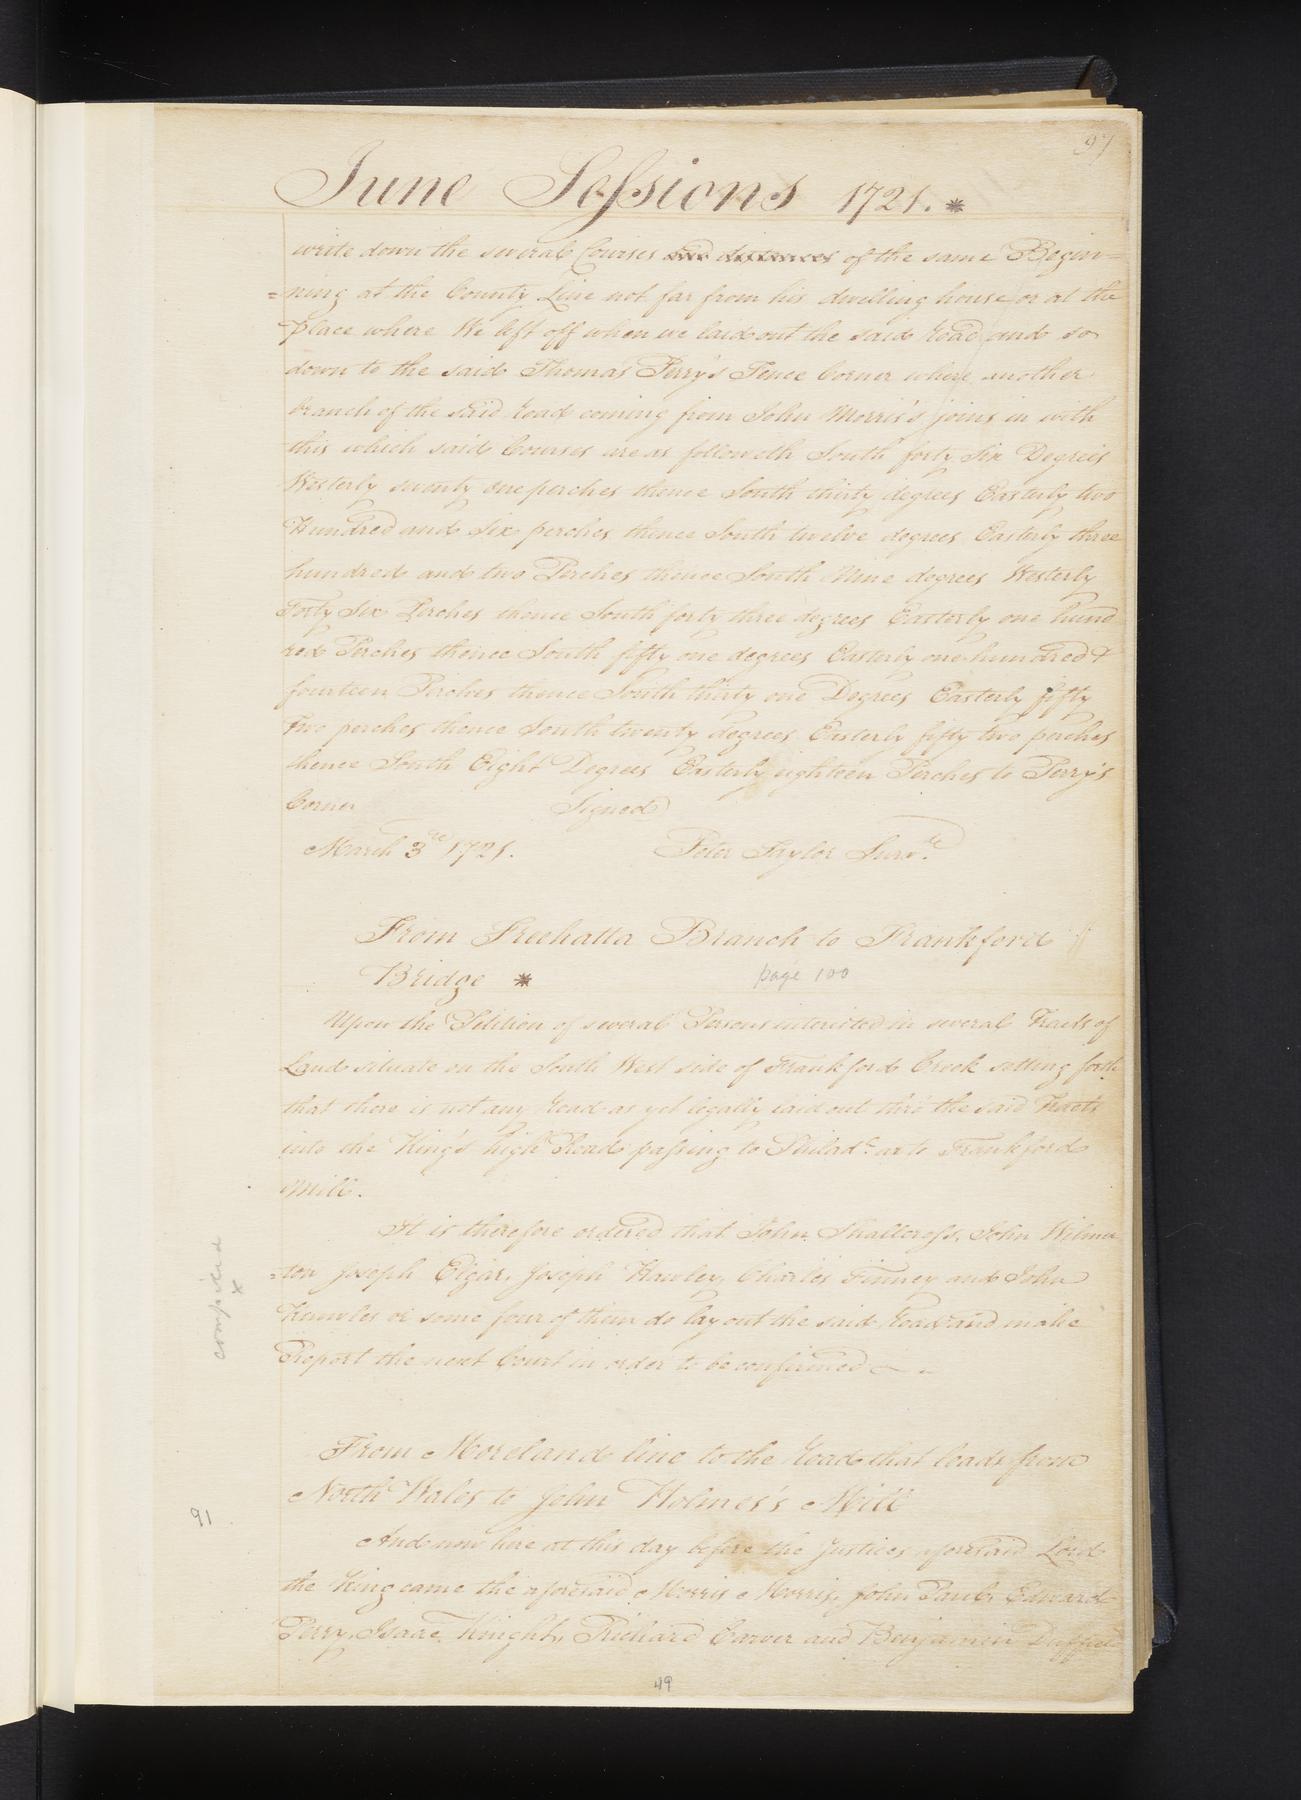 97
June Sessions 1721. *
write down the several Courses and distances of the same Begin=
=ning at the County Line not far from his dwelling house or at the
place where We left off when we laid out the said Road and so
down to the said Thomas Perry's Fence Corner where another
branch of the said Road coming from John Morris's joins in with
this which said Courses are as followeth South forty Six Degrees
Westerly seventy one perches thence South thirty degrees Easterly two
Hundred and Six perches thence South twelve degrees Easterly three
hundred and two Perches thence South Nine degrees Westerly
Forty Six Perches thence South forty three degrees Easterly one hund
red Perches thence South fifty one degrees Easterly one hundred &
fourteen Perches thence South thirty one Degrees Easterly fifty
two perches thence South twenty degrees Easterly fifty two perches
thence South Eight Degrees Easterly eighteen Perches to Perry's
Corner Signed
March 3rd 1721. Peter Taylor Surv.
From Freehatta Branch to Frankford
Bridge * page 100
Upon the Petition of several Persons interested in several Tracts of
Land situate on the South West side of Frankford Creek setting forth
that there is not any Road as yet legally laid out thro' the said Tracts
into the King's high Road passing to Philada. or to Frankford
Mill.
It is therefore ordered that John Shallcross, John Wilmer
=ton Joseph Elgar, Joseph Hawley, Charles Finney and John
Knowles or some four of them do lay out the said Road and make
Report the next Court in order to be confirmed
compiled
x
From Moreland line to the Road that leads from
North Wales to John Holmes's Mill
91
And now here at this day before the Justices aforesaid Lord
the King came the aforesaid Morris Morris, John Paul, Edward
Perry, Isaac Knight, Richard Carver and Benjamin Duffield
49